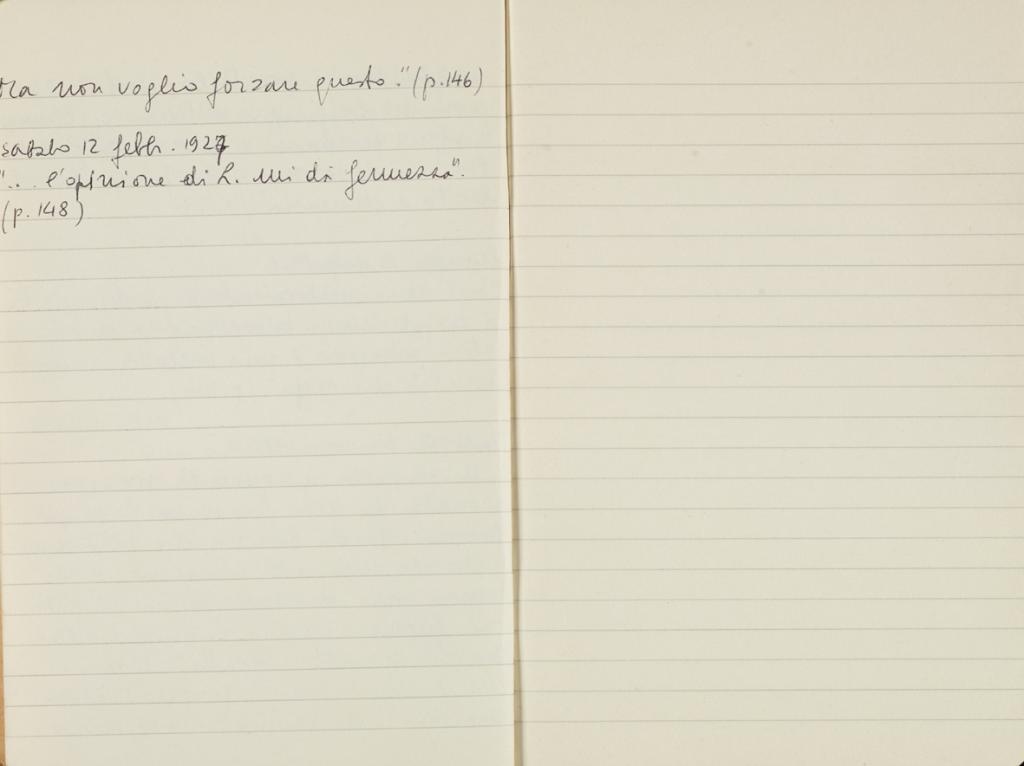 Ma non voglio forzare questo." (p.146)
sabato 12 febb. 1927
".. l'opinione di L. mi dà fermezza".
(p. 148)